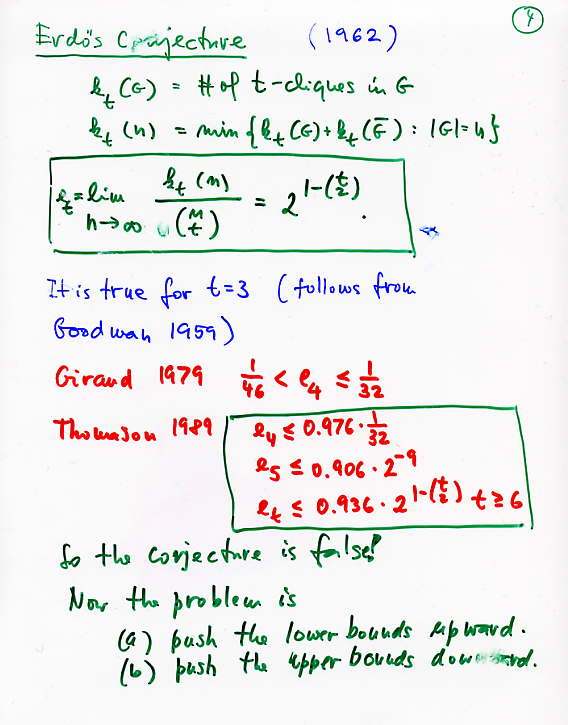 4
Erdős Conjecture (1962)
k_t(G) = # of t-cliques in G
k_t(n) = min {k_t(G) + k_t(Ḡ) : |G|=n}
e_t = lim_{n→∞} k_t(n) / (n choose t) = 2^{1-(t choose 2)}.
It is true for t=3 (follows from
Goodman 1959)
Giraud 1979 1/46 < e_4 ≤ 1/32
Thomason 1989 e_4 ≤ 0.976 · 1/32
e_5 ≤ 0.906 · 2^{-9}
e_t ≤ 0.936 · 2^{1-(t choose 2)} t ≥ 6
So the conjecture is false!
Now the problem is
(a) push the lower bounds upward.
(b) push the upper bounds downward.